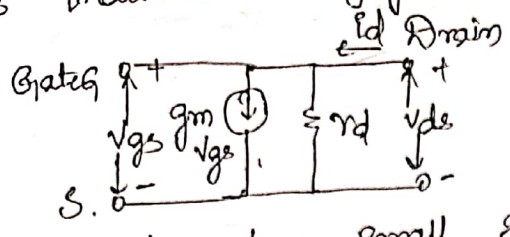 id Drain
Gate G + +
Vgs gm Vgs rd Vds
S. - -
Small